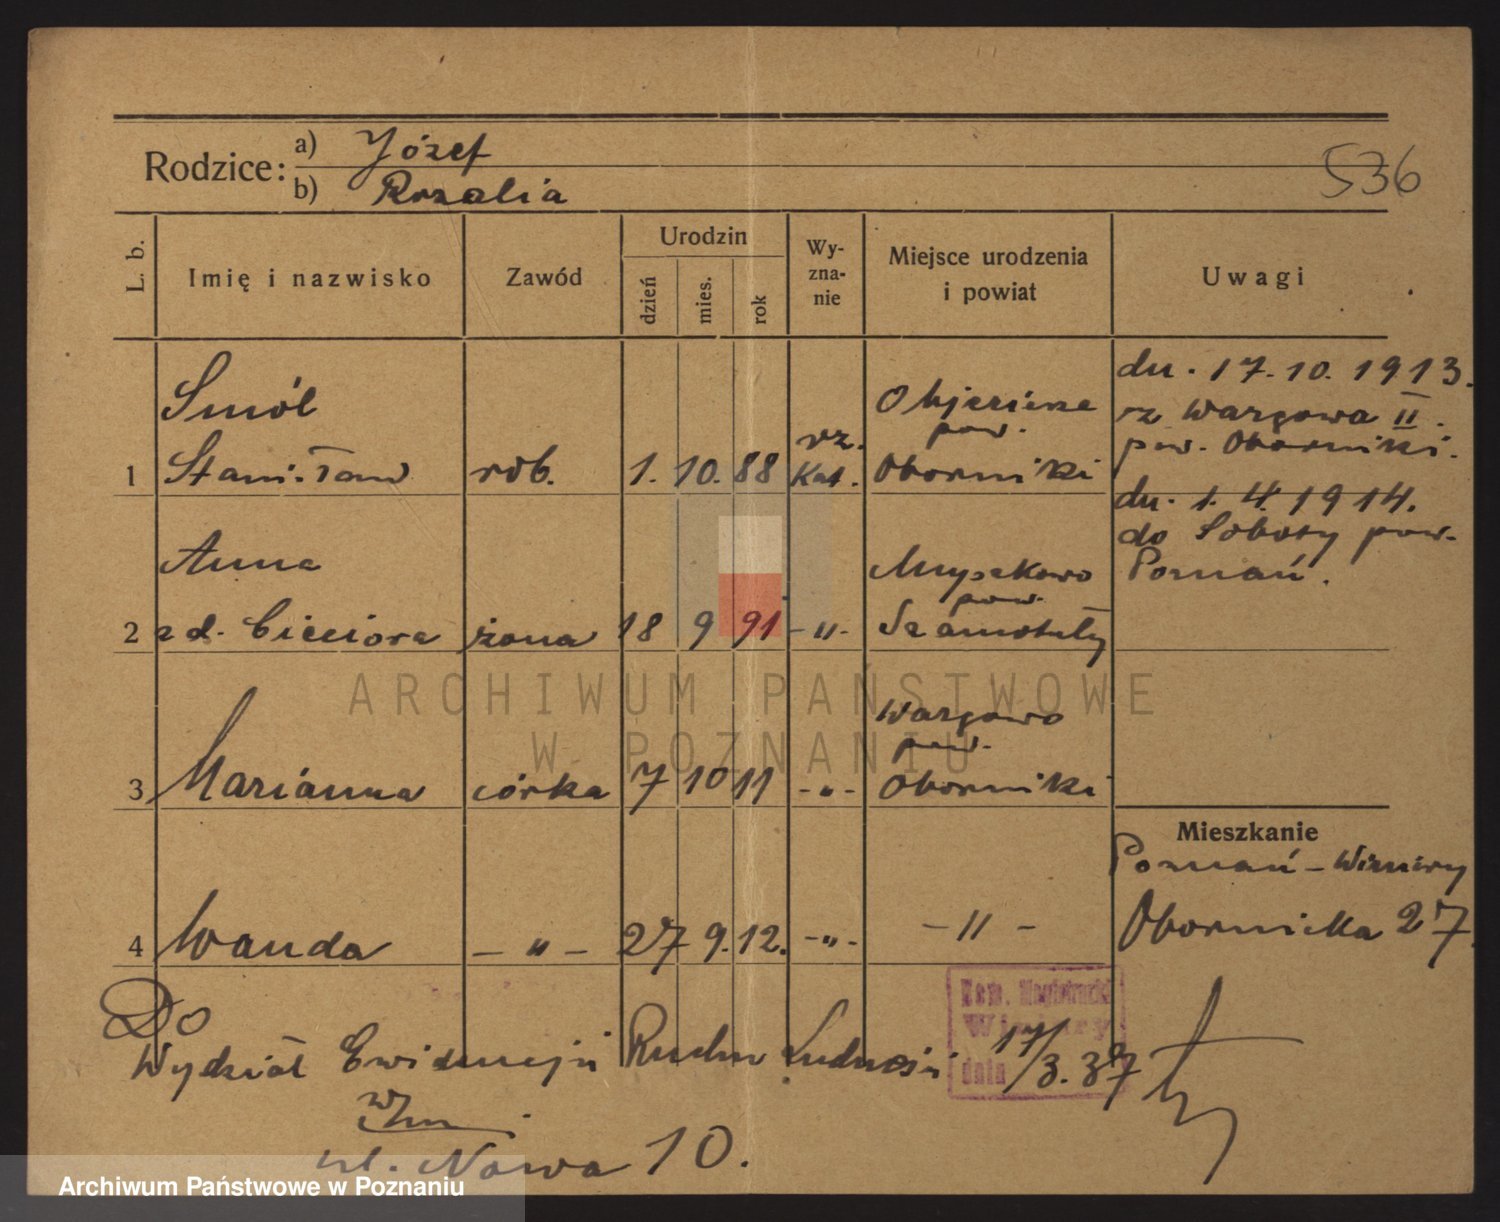 Rodzice: a) Józef
b) Rozalia
536
L. b.
Imię i nazwisko
Zawód
Urodzin
dzień
mies.
rok
Wy-
zna-
nie
Miejsce urodzenia
i powiat
Uwagi
Smól
1 Stanisław rob. 1. 10. 88 rz. Kat. Objezierze pow. Oborniki
dn. 17.10.1913.
z Wargowa II.
pow. Oborniki.
dn. 1.4.1914.
do Soboty pow.
Poznań.
Anna
2 zd. Cieciora żona 18 9 91 -"- Myszkowo pow. Szamotuły
3 Marianna córka 7 10 11 -"- Wargowo pow. Oborniki
4 Wanda -"- 27 9. 12. -"- -"-
Mieszkanie
Poznań-Winiary
Obornicka 27.
Do
Wydział Ewidencji Ruchu Ludności
w/m
ul. Nowa 10.
Kom. Magistracki
Winiary
dnia 17/3.37
ARCHIWUM PAŃSTWOWE
W POZNANIU
Archiwum Państwowe w Poznaniu